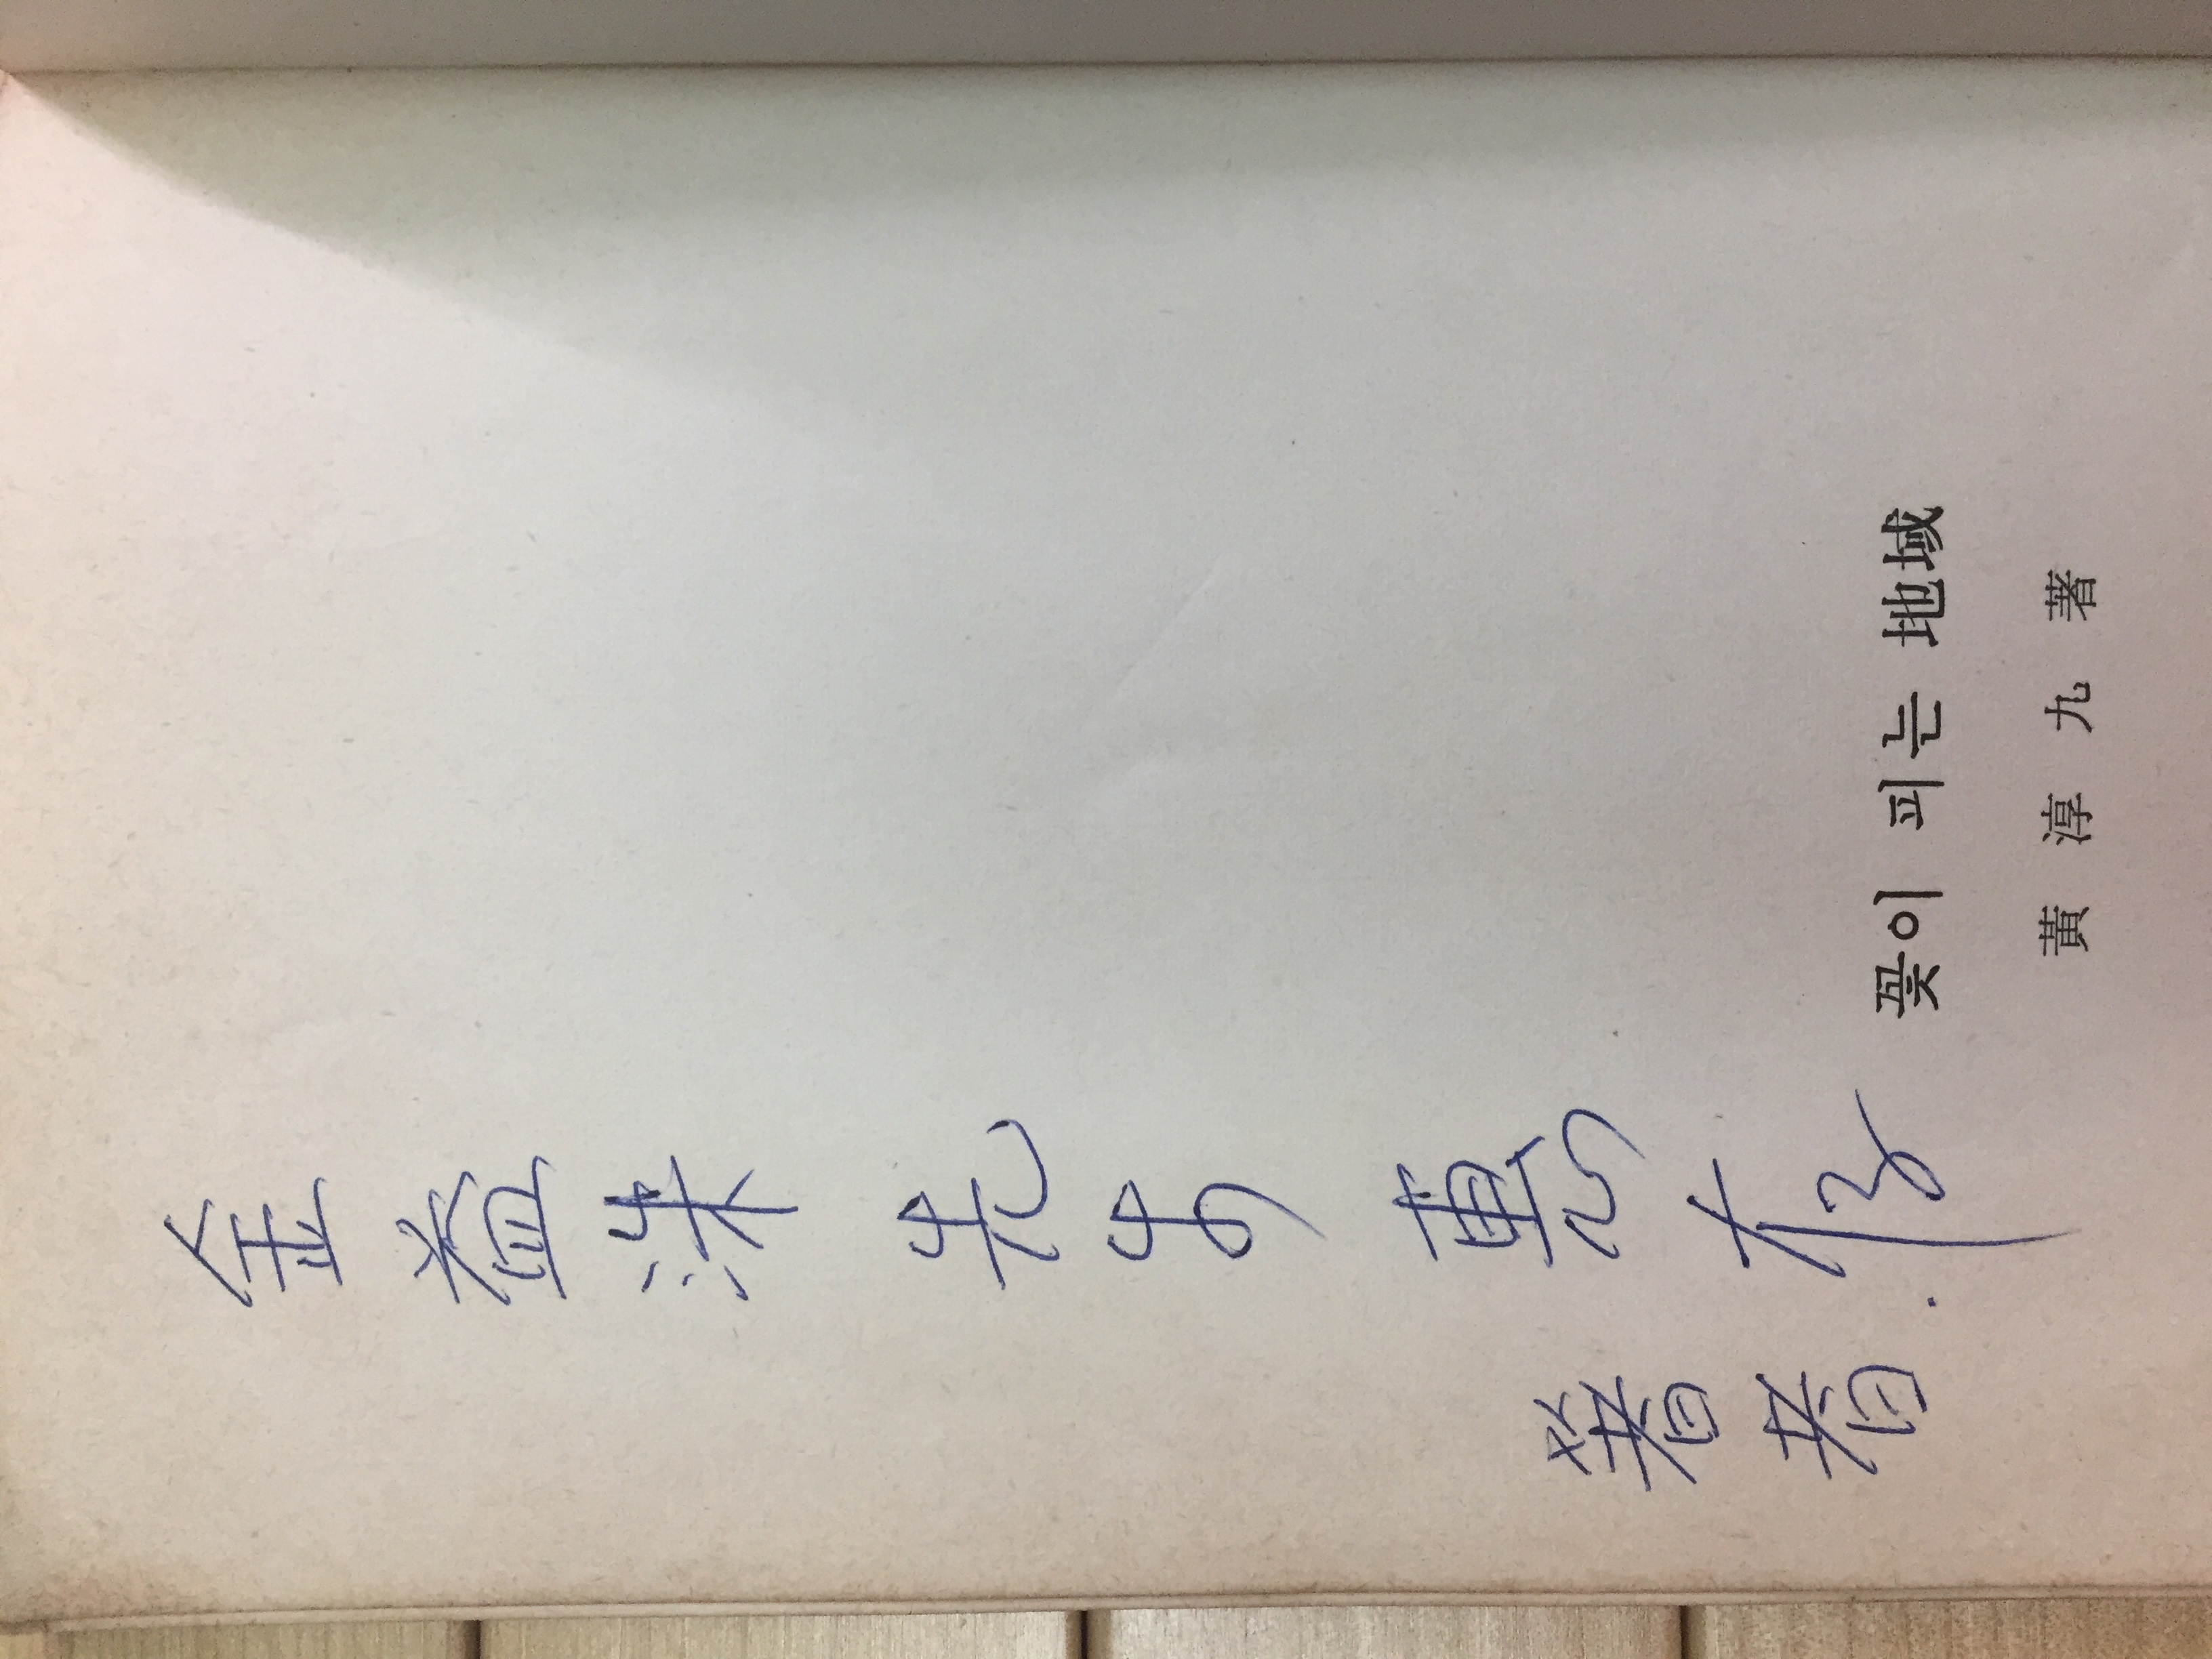 金益洙 先生 惠存.
著者
꽃이 피는 地域
黃淳九 著